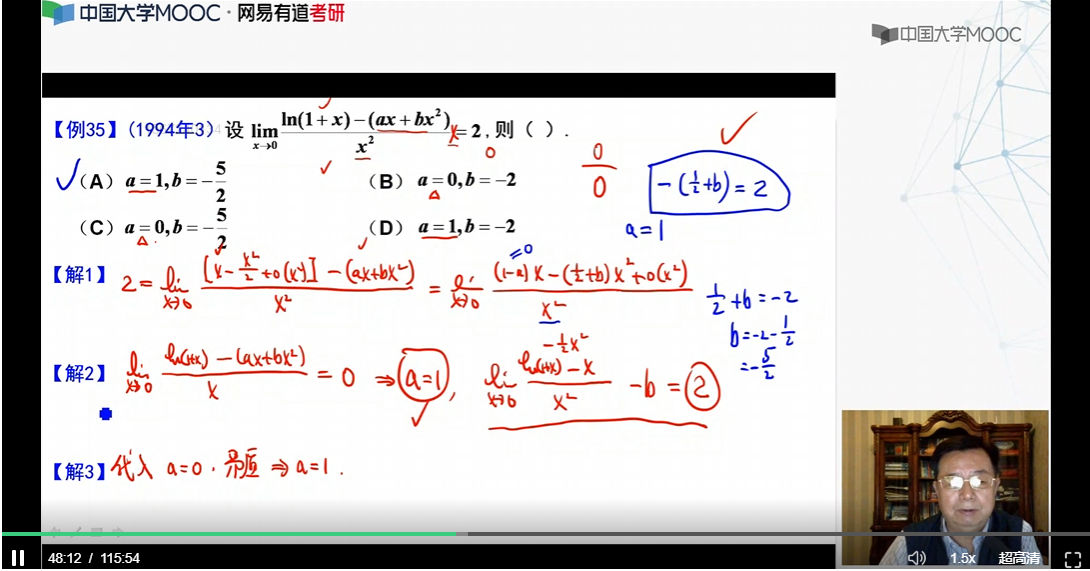 中国大学MOOC · 网易有道考研
中国大学MOOC
【例35】(1994年3) 设 lim x→0 (ln(1+x)−(ax+bx²))/x² = 2, 则 ( ).
x 0
0/0
−(1/2+b) = 2
a=1
(A) a=1,b=−5/2 (B) a=0,b=−2
(C) a=0,b=−5/2 (D) a=1,b=−2
【解1】 2 = lim x→0 ([x − x²/2 + o(x²)] − (ax+bx²))/x² = lim x→0 ((1−a)x − (1/2+b)x² + o(x²))/x²
=0
1/2 + b = −2
b = −2 − 1/2
= −5/2
【解2】 lim x→0 (ln(1+x) − (ax+bx²))/x = 0 ⇒ a=1, lim x→0 (ln(1+x) − x)/x² − b = 2
−1/2x²
【解3】 代入 a=0. ⇒ a=1.
48:12 / 115:54
1.5x 超高清